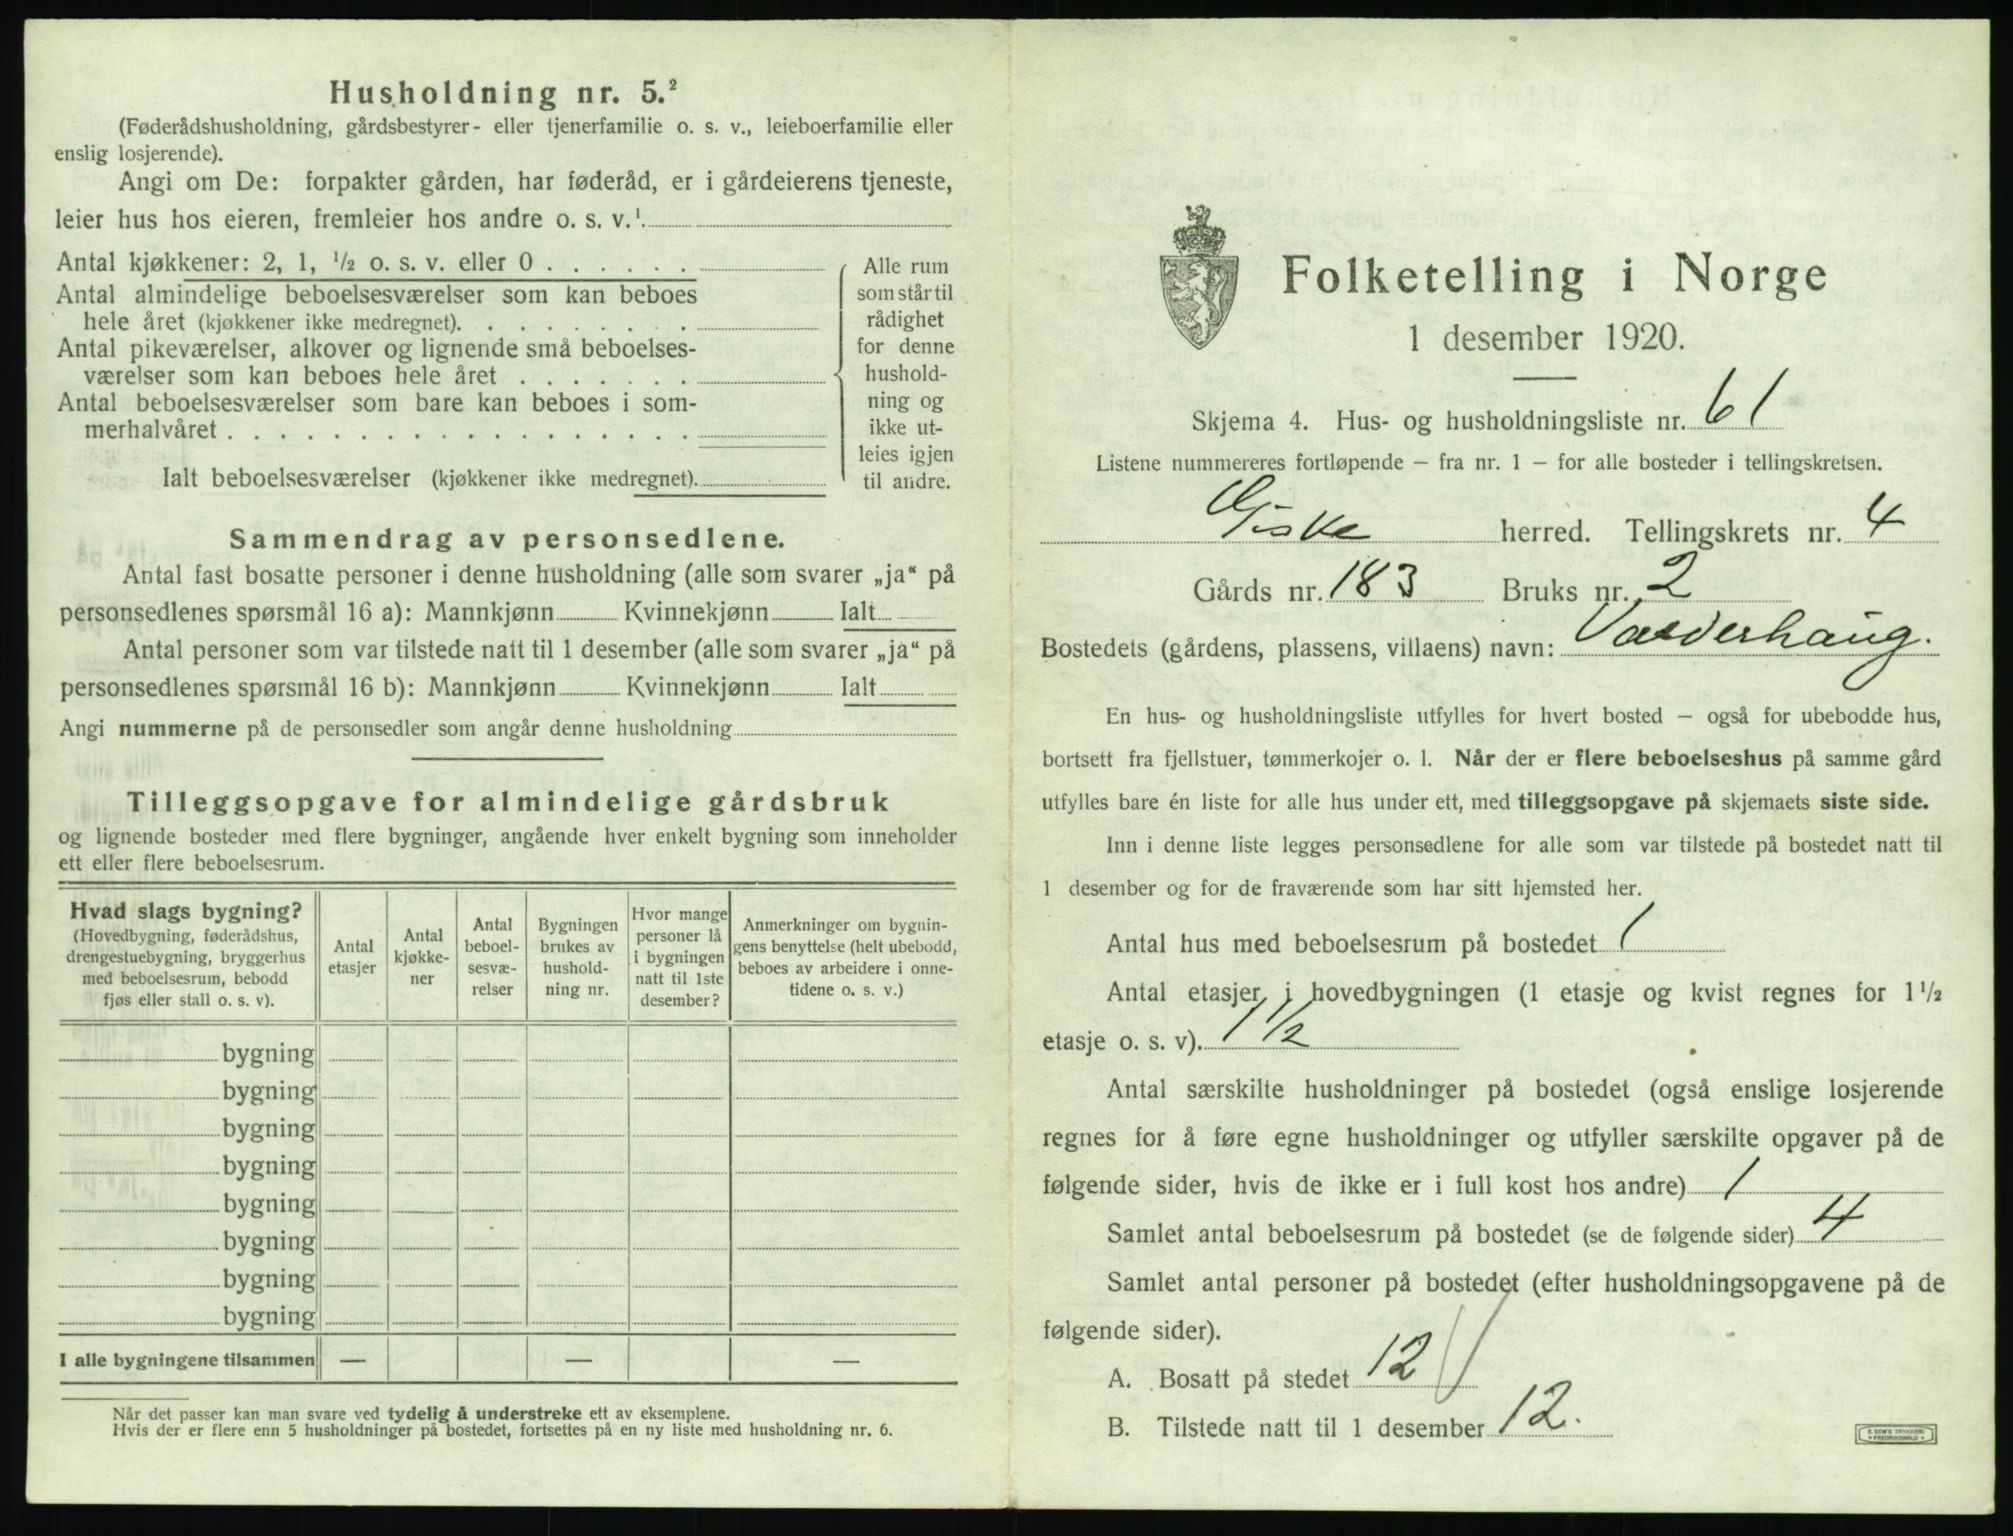 Husholdning nr. 5.²
(Føderådshusholdning, gårdsbestyrer- eller tjenerfamilie o. s. v., leieboerfamilie eller
enslig losjerende).
Angi om De: forpakter gården, har føderåd, er i gårdeierens tjeneste,
leier hus hos eieren, fremleier hos andre o. s. v.¹
Antal kjøkkener: 2, 1, ½ o. s. v. eller 0
Antal almindelige beboelsesværelser som kan beboes
hele året (kjøkkener ikke medregnet).
Antal pikeværelser, alkover og lignende små beboelses-
værelser som kan beboes hele året
Antal beboelsesværelser som bare kan beboes i som-
merhalvåret
Ialt beboelsesværelser (kjøkkener ikke medregnet).
Alle rum
som står til
rådighet
for denne
hushold-
ning og
ikke ut-
leies igjen
til andre.
Sammendrag av personsedlene.
Antal fast bosatte personer i denne husholdning (alle som svarer „ja“ på
personsedlenes spørsmål 16 a): Mannkjønn Kvinnekjønn Ialt
Antal personer som var tilstede natt til 1 desember (alle som svarer „ja“ på
personsedlenes spørsmål 16 b): Mannkjønn Kvinnekjønn Ialt
Angi nummerne på de personsedler som angår denne husholdning
Tilleggsopgave for almindelige gårdsbruk
og lignende bosteder med flere bygninger, angående hver enkelt bygning som inneholder
ett eller flere beboelsesrum.
Hvad slags bygning?
(Hovedbygning, føderådshus,
drengestuebygning, bryggerhus
med beboelsesrum, bebodd
fjøs eller stall o. s. v).
Antal
etasjer
Antal
kjøkke-
ner
Antal
beboel-
sesvæ-
relser
Bygningen
brukes av
hushold-
ning nr.
Hvor mange
personer lå
i bygningen
natt til 1ste
desember?
Anmerkninger om bygnin-
gens benyttelse (helt ubebodd,
beboes av arbeidere i onne-
tidene o. s. v.)
bygning
bygning
bygning
bygning
bygning
bygning
bygning
bygning
I alle bygningene tilsammen — — —
Når det passer kan man svare ved tydelig å understreke ett av eksemplene.
Hvis der er flere enn 5 husholdninger på bostedet, fortsettes på en ny liste med husholdning nr. 6.
Folketelling i Norge
1 desember 1920.
Skjema 4. Hus- og husholdningsliste nr. 61
Listene nummereres fortløpende – fra nr. 1 – for alle bosteder i tellingskretsen.
Giske herred. Tellingskrets nr. 4
Gårds nr. 183 Bruks nr. 2
Bostedets (gårdens, plassens, villaens) navn: Valderhaug.
En hus- og husholdningsliste utfylles for hvert bosted – også for ubebodde hus,
bortsett fra fjellstuer, tømmerkojer o. l. Når der er flere beboelseshus på samme gård
utfylles bare én liste for alle hus under ett, med tilleggsopgave på skjemaets siste side.
Inn i denne liste legges personsedlene for alle som var tilstede på bostedet natt til
1 desember og for de fraværende som har sitt hjemsted her.
Antal hus med beboelsesrum på bostedet 1
Antal etasjer i hovedbygningen (1 etasje og kvist regnes for 1½
etasje o. s. v). 1 ½
Antal særskilte husholdninger på bostedet (også enslige losjerende
regnes for å føre egne husholdninger og utfyller særskilte opgaver på de
følgende sider, hvis de ikke er i full kost hos andre) 1
Samlet antal beboelsesrum på bostedet (se de følgende sider) 4
Samlet antal personer på bostedet (efter husholdningsopgavene på de
følgende sider).
A. Bosatt på stedet 12
B. Tilstede natt til 1 desember 12.
E. SEM'S TRYKKERI
FREDRIKSHALD